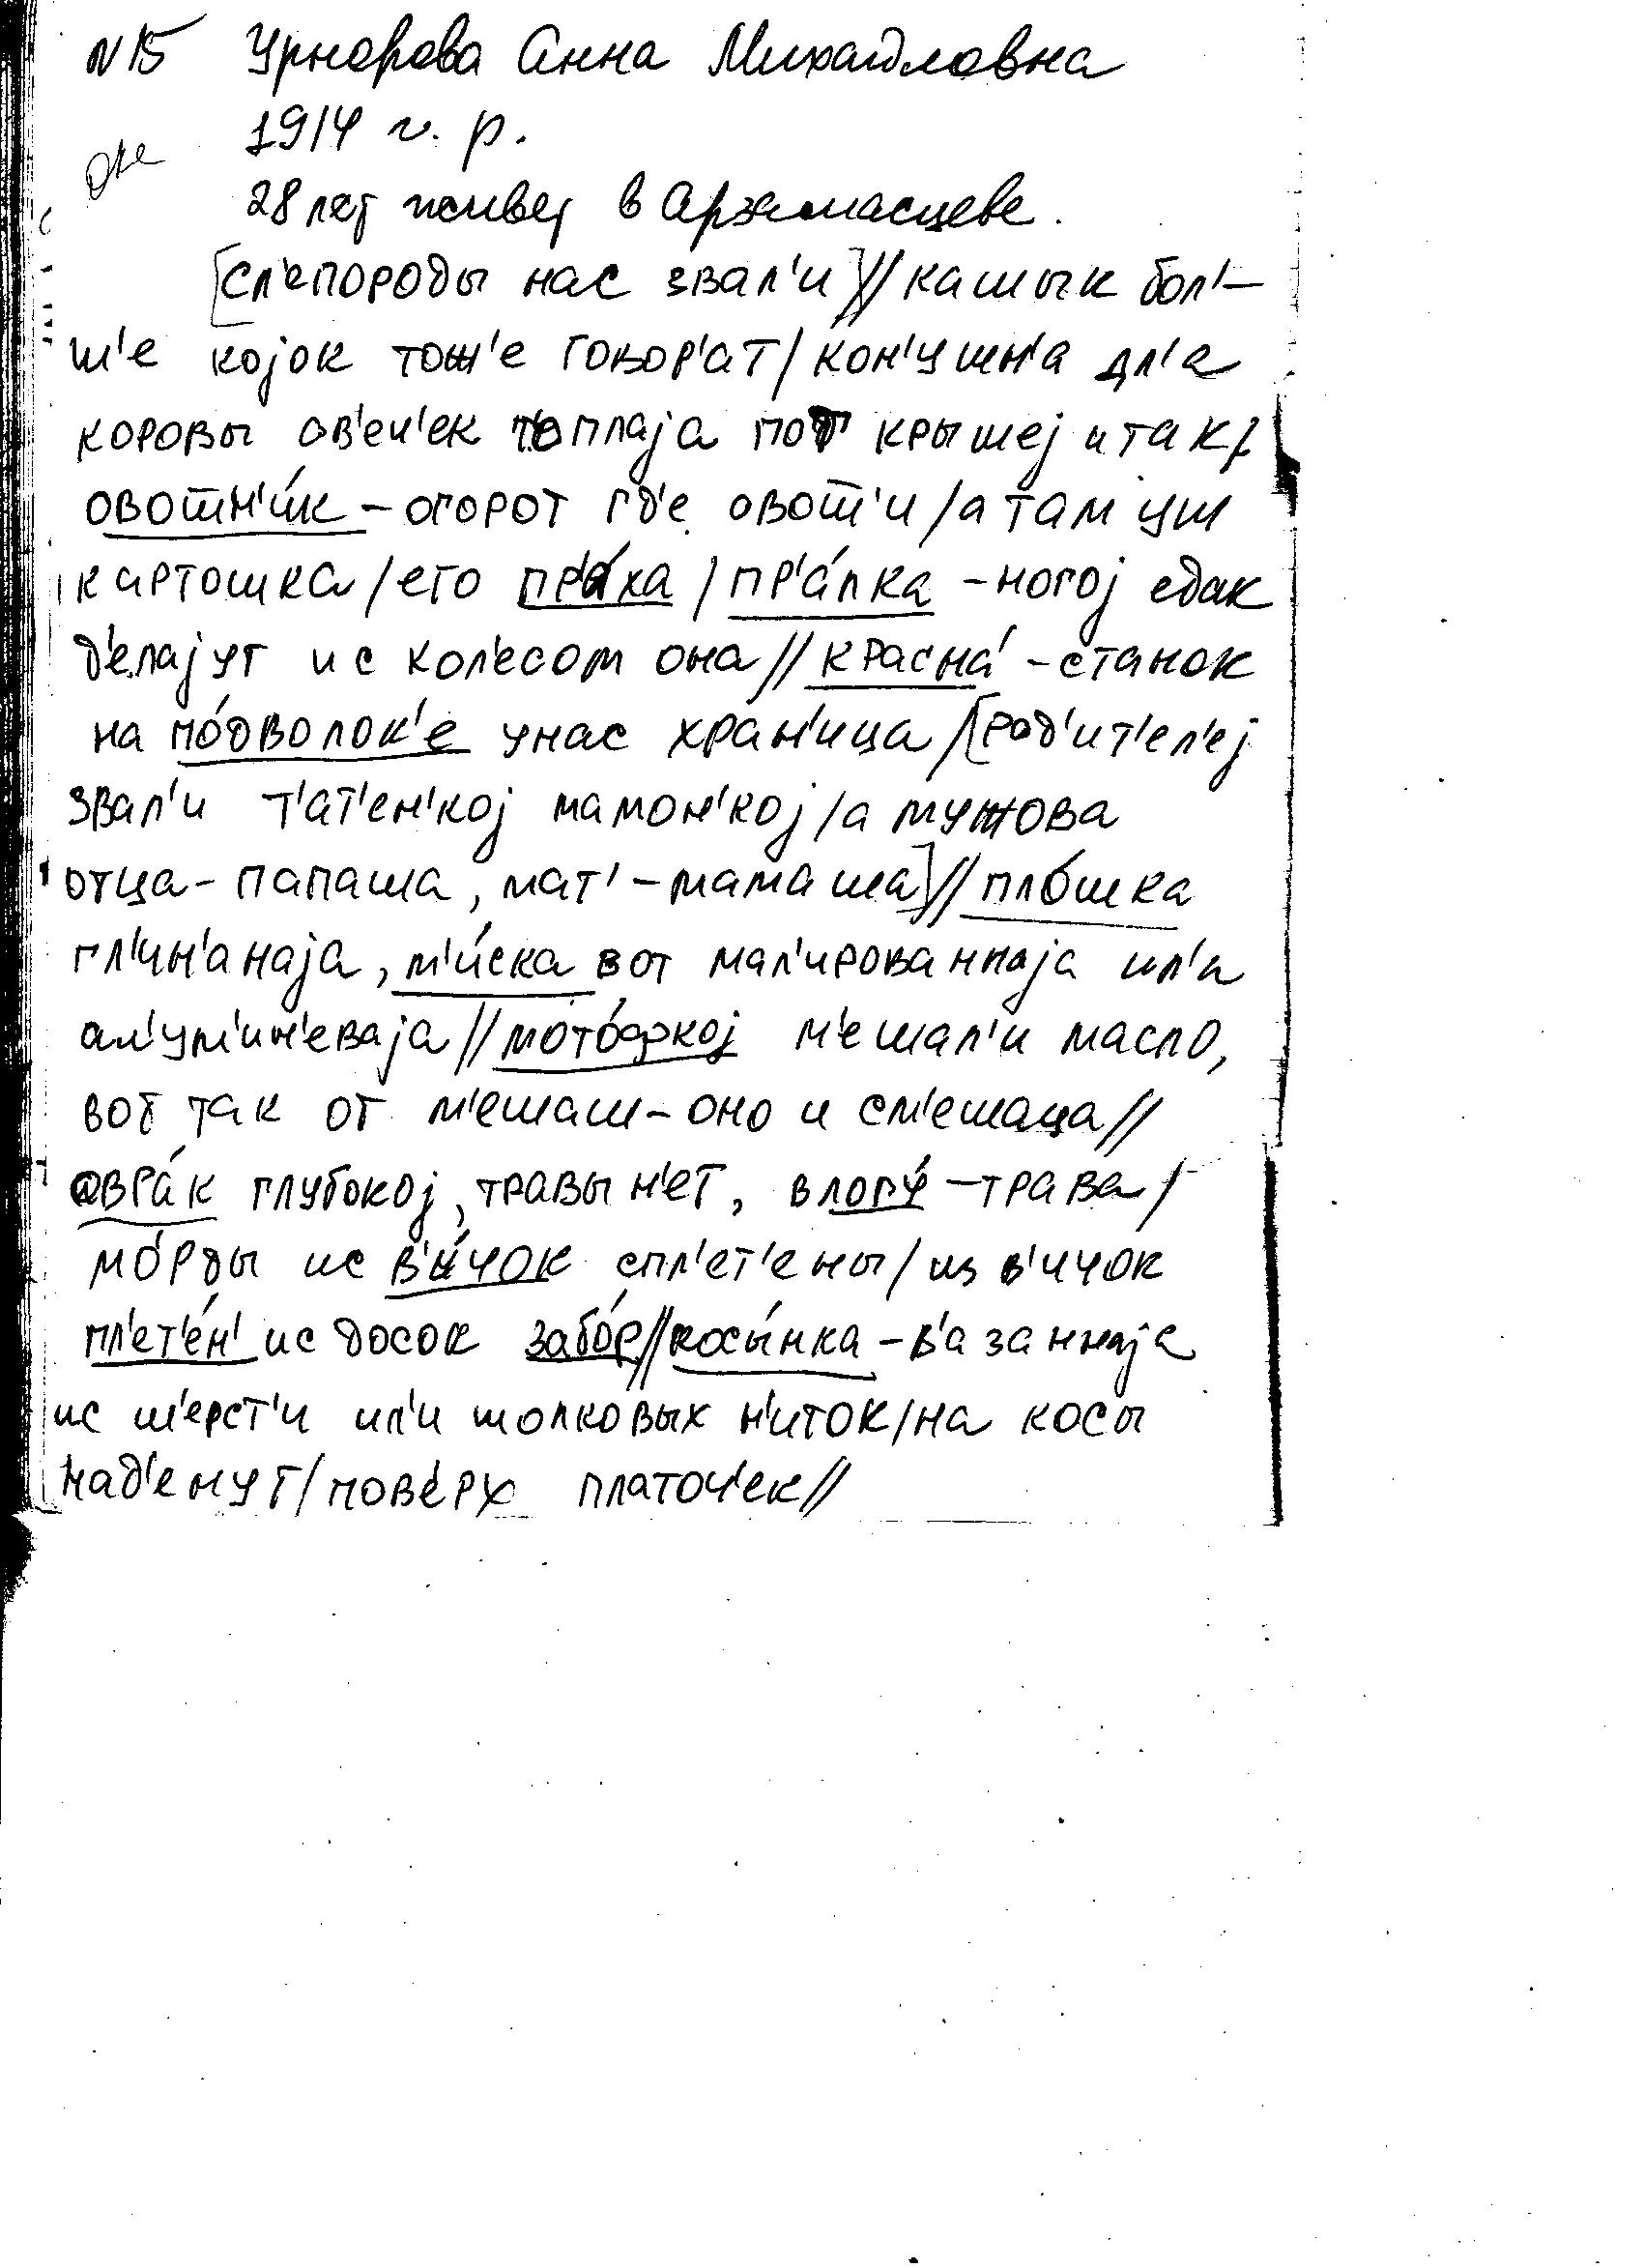 N 15 Урнарева Анна Михайловна
1914 г. р.
28 лет живет в Арзамасцеве.
[сл'епороды нас звал'и]// кашык бол'-
ш'е којок тож'е говор'ат/ кон'ушн'а дл'а
коровы ов'еч'ек т'оплаја пот крышеј и так/
овошн'и́к - огорот гд'е овош'и /а там уш
картошка /ето пр'а́ха / пр'а́лка - ногој едак
д'елајут и с кол'есом она// красна́ - станок
на по́дволок'е у нас хран'ица /[род'ит'ел'еј
звал'и т'ат'ен'кој мамон'кој /а мужова
отца - папаша, мат' - мамаша]// пло́шка
гл'ин'анаја, м'и́ска вот мал'ированнаја ил'и
ал'ум'ин'еваја// мото́фкој м'ешал'и масло,
вот так от м'ешаш - оно и см'ешаца//
овра́к глубокој, травы н'ет, в логу́ - трава/
мо́рды ис в'и́чок спл'ет'ены/ из в'ичок
пл'ет'е́н' ис досок забо́р// косы́нка - в'азаннаја
ис ш'ерст'и ил'и шолковых н'иток/ на косы
над'енут/ пове́рх платоч'ек//